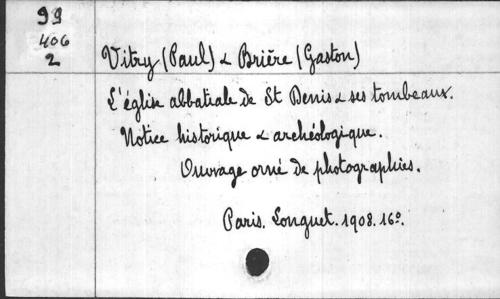 99
406
2
Vitry (Paul) & Brière (Gaston)
L'église abbatiale de St Denis & ses tombeaux.
Notice historique & archéologique.
Ouvrage orné de photographies.
Paris. Longuet. 1908. 16º.